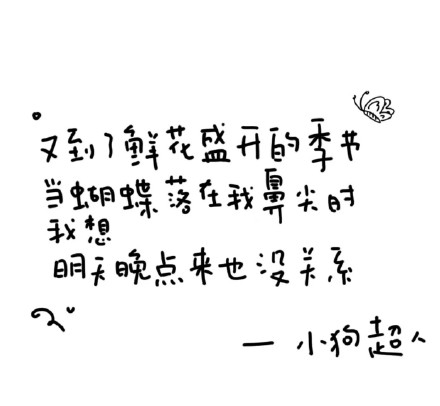 又到了鲜花盛开的季节
当蝴蝶落在我鼻尖时
我想
明天晚点来也没关系
— 小狗超人